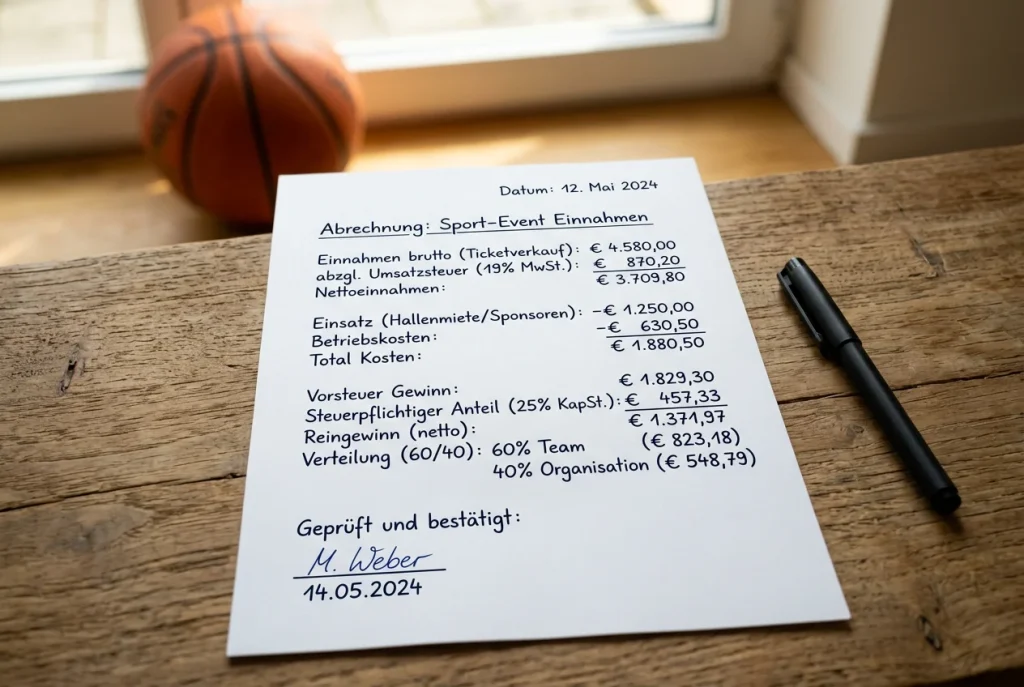 Datum: 12. Mai 2024
Abrechnung: Sport-Event Einnahmen
Einnahmen brutto (Ticketverkauf): € 4.580,00
abzgl. Umsatzsteuer (19% MwSt.): € 870,20
Nettoeinnahmen: € 3.709,80
Einsatz (Hallenmiete/Sponsoren): -€ 1.250,00
Betriebskosten: -€ 630,50
Total Kosten: € 1.880,50
Vorsteuer Gewinn: € 1.829,30
Steuerpflichtiger Anteil (25% KapSt.): € 457,33
Reingewinn (netto): € 1.371,97
Verteilung (60/40): 60% Team (€ 823,18)
40% Organisation (€ 548,79)
Geprüft und bestätigt:
M. Weber
14.05.2024